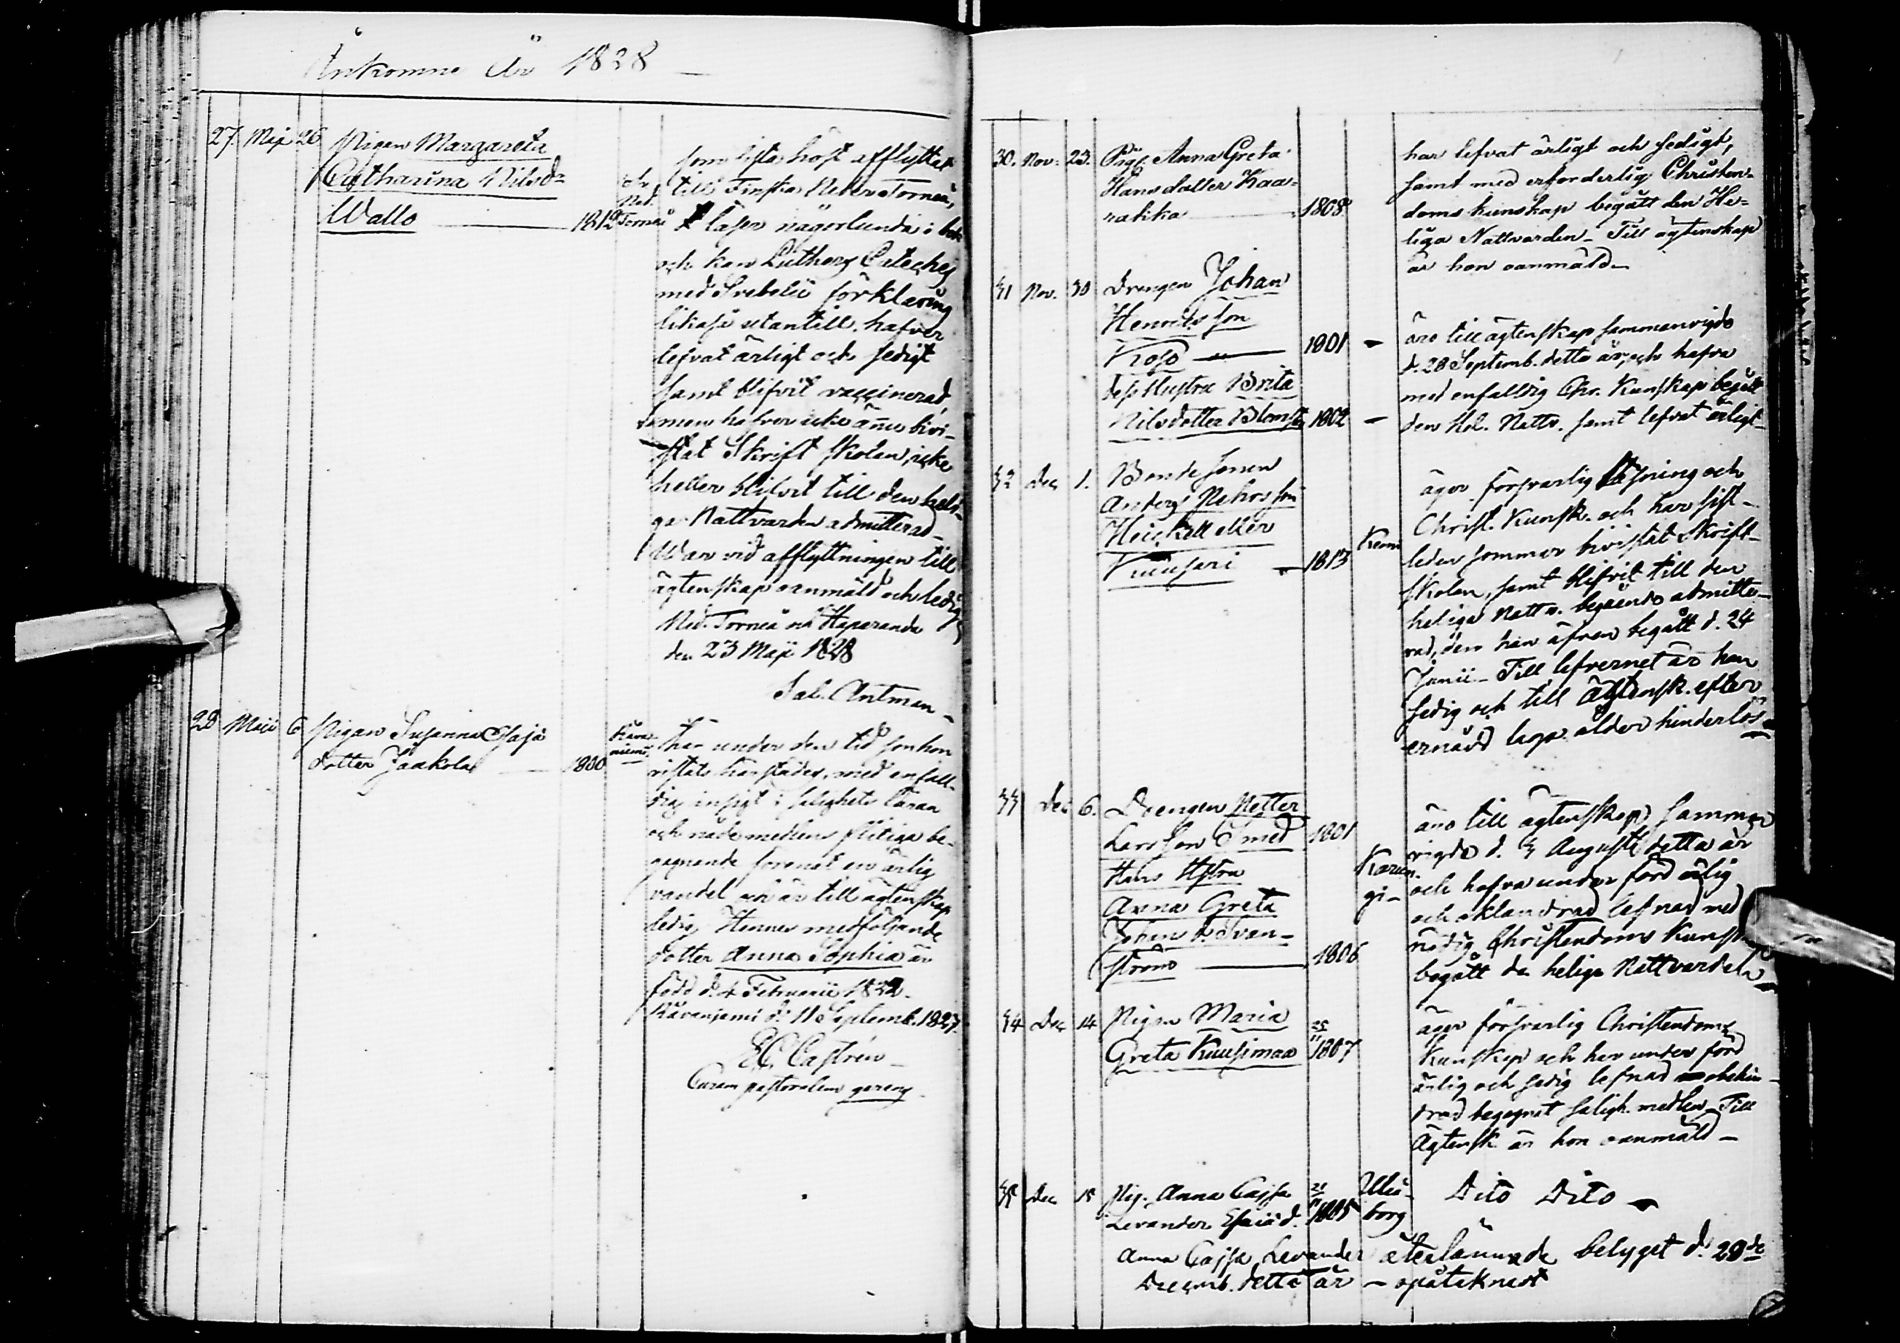 Ankomne År 1828
27. Maji 26 Pigan Margareta
Catharina Nilsdr
Wallo 1812 Ned. Torneå
som sista höst afflyttat
till Finska Neder Torneå,
läser någorlunda i bok
och kan Luthers Cateches
med Svebelii förklaring
likaså utantill, hafver
lefvat ärligt och sedigt
samt blifvit vaccinerad,
men hafver icke ännu bivi-
stat Skrift skolan, icke
heller blifvit till den heli-
ga Nattvarden admitterad
War vid afflyttningen till
ägtenskap oanmäld och ledig
Ned. Torneå och Haparanda
den 23 Maji 1828
Sal. Antman
28 Maii 6 Pigan Susanna Esajæ
dotter Jaakola 1800
har under den tid som hon
vistats härstädes, med enfall-
dig insigt i salighets läran
och nådemedlens flitiga be-
gagnande förenat en ärlig
vandel och är till ägtenskap
ledig. Hennes medföljande
dotter Anna Sophia är
född d. 4 Februarii 1822.
Råvaniemi d. 11 Septemb. 1827.
E C Castrén
Curam pastoralem gerens
30. Nov. 23. Pig. Anna Greta
Hans dotter Kaa-
rakka 1808
har lefvat ärligt och sedigt,
samt med erforderlig Christen-
doms kunskap begått den He-
liga Nattvarden. Till ägtenskap
är hon oanmäld
31 Nov. 30 Drengen Johan
Henricsson
1801
dess Hustru Brita
Nilsdotter 1802
äro till ägtenskap sammanvigde
d. 28 Septemb. detta år, och hafva
med enfalldig Chr. Kunskap begått
den Hel. Nattv. samt lefvat ärligt
32 Dec 1. Bonde sonen
Anders
Heickell eller
Kuusari 1813 Kemi
äger försvarlig läsning och
Christ. Kunsk. och har sist-
leden sommar bivistat Skrift-
skolan, samt blifvit till den
heliga Nattv. begående admitte-
rad, den han äfven begått d. 24
Junii. Till lefvernet är han
sedig och till ägtensk. efter
ernådd laga ålder hinderlös
33 Dec 6. Drengen Petter
Larsson Smed 1801
Hans Hstru
Anna Greta
Johans d. Svan-
ström 1806
Karun-
gi
äro till ägtenskap samman
vigda d. 3 Augusti detta år
och hafva under förd ärlig
och oklandrad lefnad med
nödig Christendoms Kunsk.
begått den heliga Nattvarden
34 Dec 14 Pigan Maria
Greta Kuusimaa 25/11 1807
äger försvarlig Christendoms
Kunskap och har under förd
ärlig och sedig lefnad obehin-
drad begagnat saligh. medlen. Till
Ägtensk är hon oanmäld
35 Dec 15 Pig. Anna Cajsa
Levander Esaiæ d. 1805 Uleå-
borg
Dito Dito
Anna Cajsa Levander återlämnade betyget d. 29de
Decemb. detta år – opåteknadt